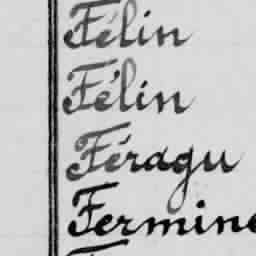 Félin
Félin
Féragu
Fermine